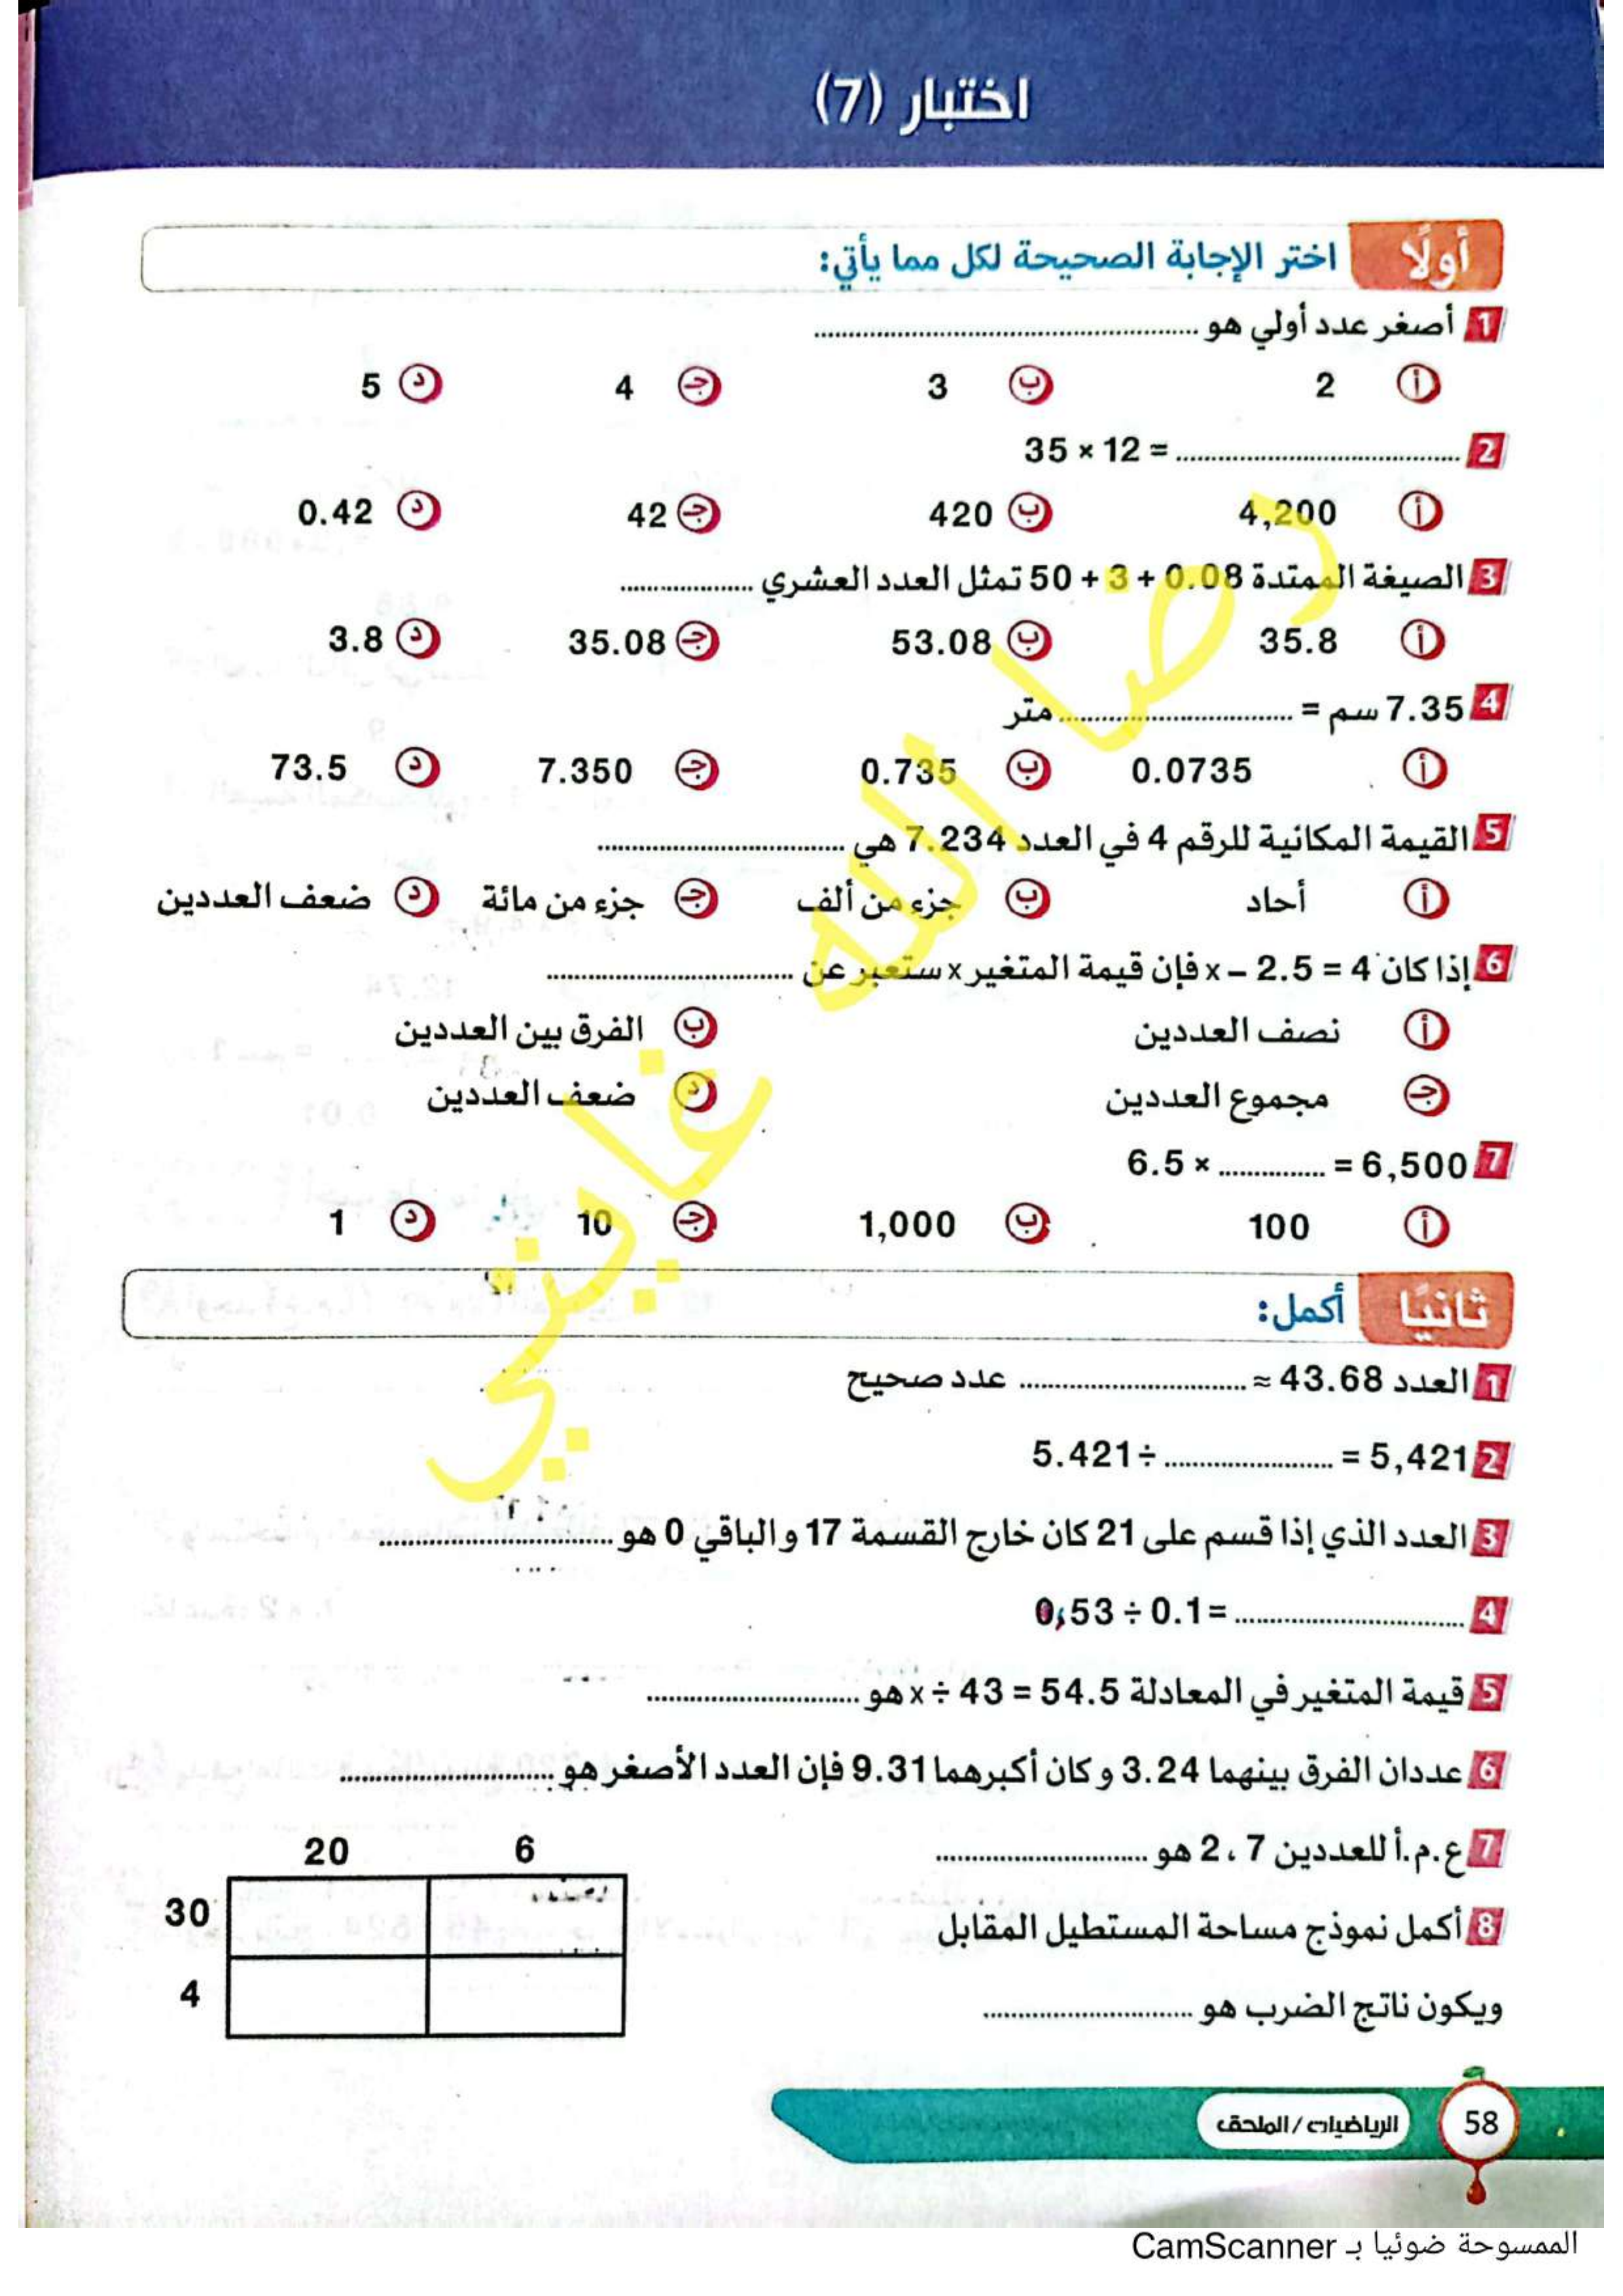 اختبار (7)
أولًا اختر الإجابة الصحيحة لكل مما يأتي:
1 أصغر عدد أولي هو ........
أ 2 ب 3 ج 4 د 5
2 35 × 12 = ........
أ 4,200 ب 420 ج 42 د 0.42
3 الصيغة الممتدة 0.08 + 3 + 50 تمثل العدد العشري ........
أ 35.8 ب 53.08 ج 35.08 د 3.8
4 7.35 سم = ........ متر
أ 0.0735 ب 0.735 ج 7.350 د 73.5
5 القيمة المكانية للرقم 4 في العدد 7.234 هي ........
أ أحاد ب جزء من ألف ج جزء من مائة د ضعف العددين
6 إذا كان x – 2.5 = 4 فإن قيمة المتغير x ستعبر عن ........
أ نصف العددين ب الفرق بين العددين
ج مجموع العددين د ضعف العددين
7 6.5 × ........ = 6,500
أ 100 ب 1,000 ج 10 د 1
ثانيًا أكمل:
1 العدد 43.68 ≈ ........ عدد صحيح
2 5.421 ÷ ........ = 5,421
3 العدد الذي إذا قسم على 21 كان خارج القسمة 17 والباقي 0 هو ........
4 0,53 ÷ 0.1 = ........
5 قيمة المتغير في المعادلة x ÷ 43 = 54.5 هو ........
6 عددان الفرق بينهما 3.24 وكان أكبرهما 9.31 فإن العدد الأصغر هو ........
7 ع.م.أ للعددين 7 ، 2 هو ........
8 أكمل نموذج مساحة المستطيل المقابل
ويكون ناتج الضرب هو ........
20 6
30
4
رضا الله غايتي
58 الرياضيات / الملحق
الممسوحة ضوئيا بـ CamScanner